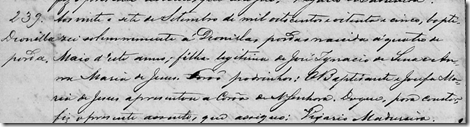 239. Aos vinte e sete de Setembro de mil oitocentos e oitenta e cinco, bapti
Dionilla zei solemnemente á Dionilla, parda, nascida á quatro de
parda Maio d'este anno, filha legitima de José Ignacio de Sena e An
na Maria de Jesus. Forão padrinhos: Baptista e Josefa Ma
ria de Jesus apresentou a Corôa de N. Senhora. Do que, para constar
fiz o presente assento, que assigno: Vigario Madureira.